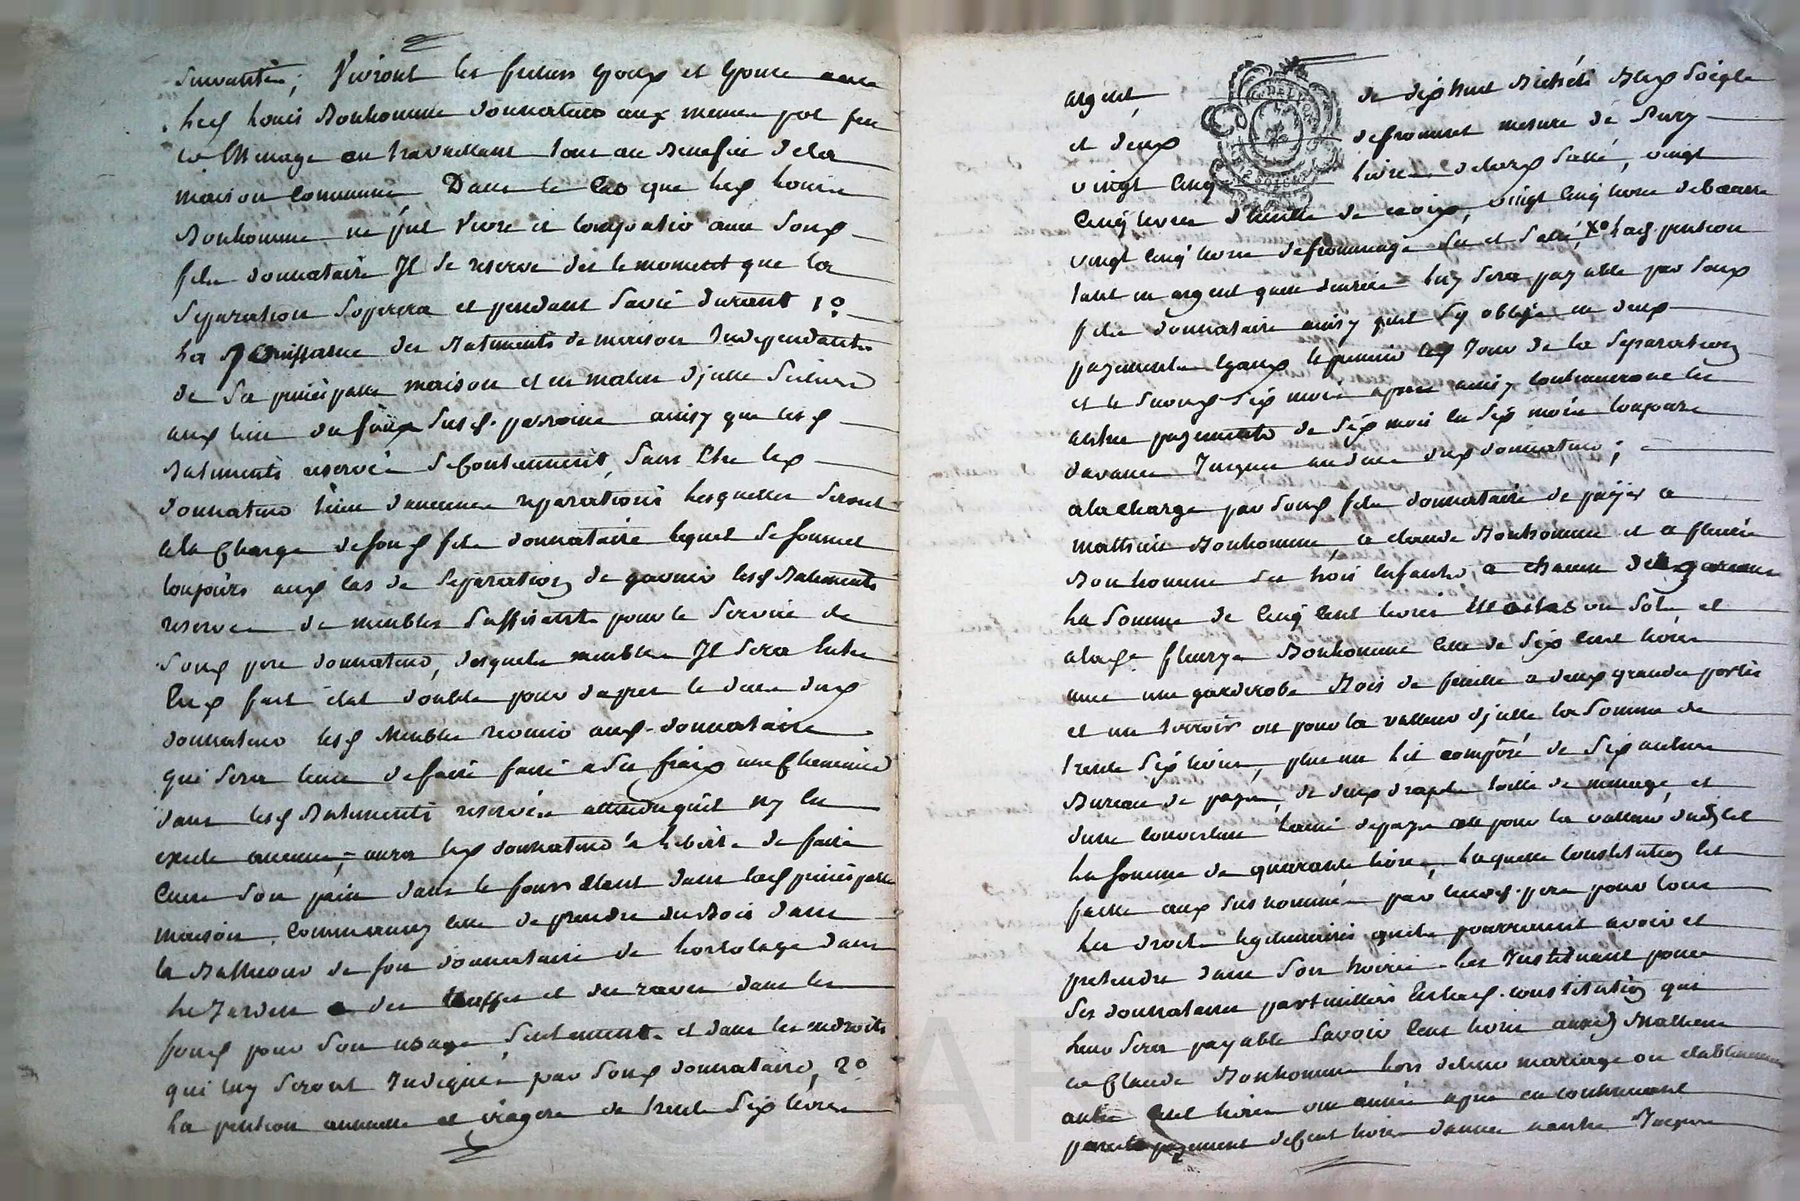 suivantes; Vivront les futurs Epoux et Epouse avec
led. Louis Bonhomme donnateur aux meme pot feu
et Menage en travaillant tous au Benefice de la
maison commune, Dans le Cas que led. Louis
Bonhomme ne put vivre et compatir avec Sond.
fils donnataire Il se reserve des le moment que la
separation Soperera et pendant Savie durant 1º
La Jouissance des Batiments de maison Independants
de Sa principalle maison et en malin
aud. lieu du susd. ainsy que lesd.
Batiments reservés Secontiennent, Sans Etre led.
donnateur tenu daucunes reparations lesquelles seront
ala Charge desond. fils donnataire lequel Se Soumet
toujours aud. Cas de Separation de garnir lesd. Batiments
reservés de meubles Suffisants pour le Service de
Sond. pere donnateur, desquels meubles Il sera Entre
Eux fait état double pour dapres le deces dud.
donnateur lesd. Meubles reunis aud. donnataire
qui Sera tenu de faire faire a Ses fraix une Cheminée
dans lesd. Batiments reservés attendu quil ny En
existe aucune; aura led. donnateur la liberté de faire
Cuire Son pain dans le four Etant dans lad. principalle
maison, Comme aussy celle de prendre du Bois dans
le de Son donnataire de hortolage dans
Le Jardin et des truffes et des raves dans les
fonds pour Son usage Seulement et dans les endroits
qui luy Seront Indiqués par Sond. donnataire, 2º
La pention annuelle et viagere de trente Six livres
argent de dix huit Bichets Bled Soigle
et deux defroment mesure de Sury
vingt Cinq livres de lard Sallé, vingt
Cinq livres dhuille de noix, vingt Cinq livres de Beurre
vingt Cinq livres defrommage Sec et Salé, Xº Lad. pention
tant en argent quen denrées luy Sera payable par Sond.
fils donnataire ainsy quil Sy oblige en deux
payements Egaux le premier led. Jour de la Separation
et le Second Six mois apres ainsy continuera les
autres payements de Six mois En Six mois toujours
davance Jusques au deces dud. donnateur;
ala charge par Sond. fils donnataire de payer a
mathieu Bonhomme, a claude Bonhomme et a fleurie
Bonhomme Ses trois Enfants, a chacun des garcons
La Somme de Cinq Cent livres et
alad. fleurye Bonhomme Celle de Six Cent livres
avec une garderobe Bois de feuille a deux grandes portes
et un tirroir ou pour la valleur dicelle la Somme de
trente Six livres, plus un lit composé de Six aulnes
Bureau de payx, de deux draps toille de menage, et
dune couverture laine depayx ou pour la valleur dud. lit
La Somme de quarante livres, Laquelle Constitution Est
faitte aux Susnommés par leurd. pere pour tous
Les droits legitimaires quils pourroient avoir et
pretendre dans Son hoirie les Instituant pour
Ses donnataires particulliers Enlad. constitution qui
leur Sera payable Savoir Cent livres auxd. Mathieu
et Claude Bonhomme lors deleur mariage ou etablissement
autre Cent livres une année apres en continuant
pareils payement deCent livres dannée en autre Jusques